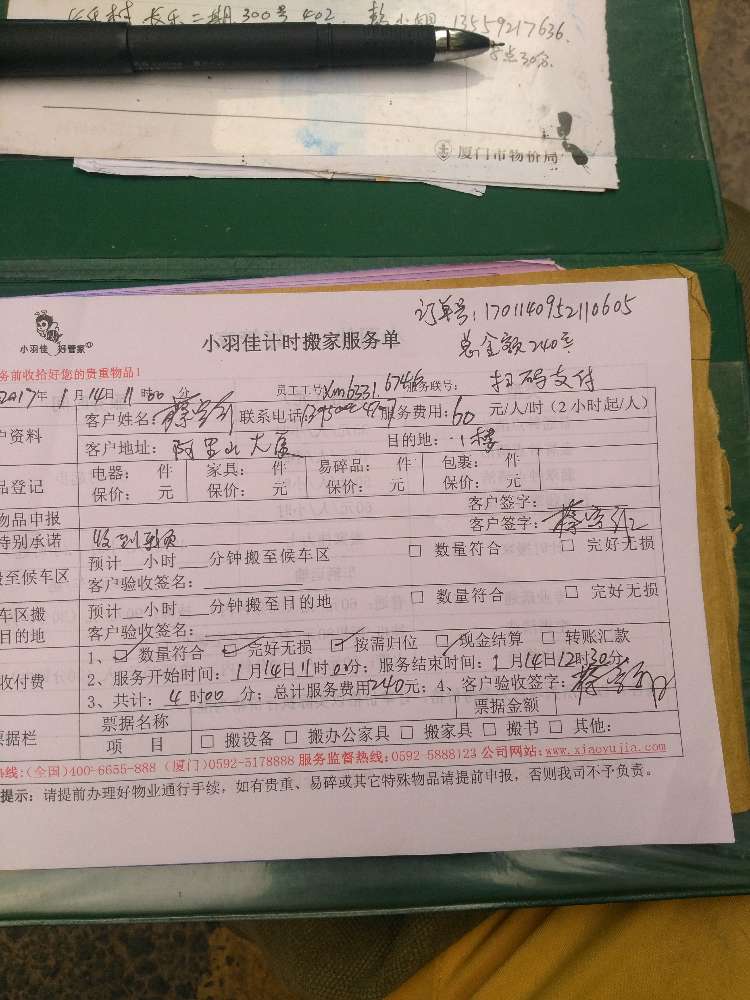 长乐二期300号402. 彭小姐 13559217636.
8点30分.
厦门市物价局
订单号:1701140952110605
小羽佳 好管家
小羽佳计时搬家服务单
总金额240元
务前收拾好您的贵重物品!
扫码支付
2017年1月14日11时00分 员工工号 服务联号:
户资料 客户姓名: 联系电话: 服务费用:60 元/人/时(2小时起/人)
客户地址: 阿里山大厦 目的地: 1楼
品登记 电器: 件 家具: 件 易碎品: 件 包裹: 件
保价: 元 保价: 元 保价: 元 保价: 元
物品申报 客户签字:
特别承诺 客户签字:
搬至候车区 预计__小时___分钟搬至候车区 □ 数量符合 □ 完好无损
客户验收签名:
车区搬目的地 预计__小时___分钟搬至目的地 □ 数量符合 □ 完好无损
客户验收签名:
收付费 1、☑ 数量符合 ☑ 完好无损 ☑ 按需归位 ☑ 现金结算 □ 转账汇款
2、服务开始时间:1月14日11时00分;服务结束时间:1月14日12时30分
3、共计:4时00分;总计服务费用240元;4、客户验收签字:
票据栏 票据名称 票据金额
项 目 □ 搬设备 □ 搬办公家具 □ 搬家具 □ 搬书 □ 其他:
热线:(全国)400-6655-888 (厦门)0592-5178888 服务监督热线:0592-5888123 公司网站:www.xiaoyujia.com
提示:请提前办理好物业通行手续,如有贵重、易碎或其它特殊物品请提前申报,否则我司不予负责。